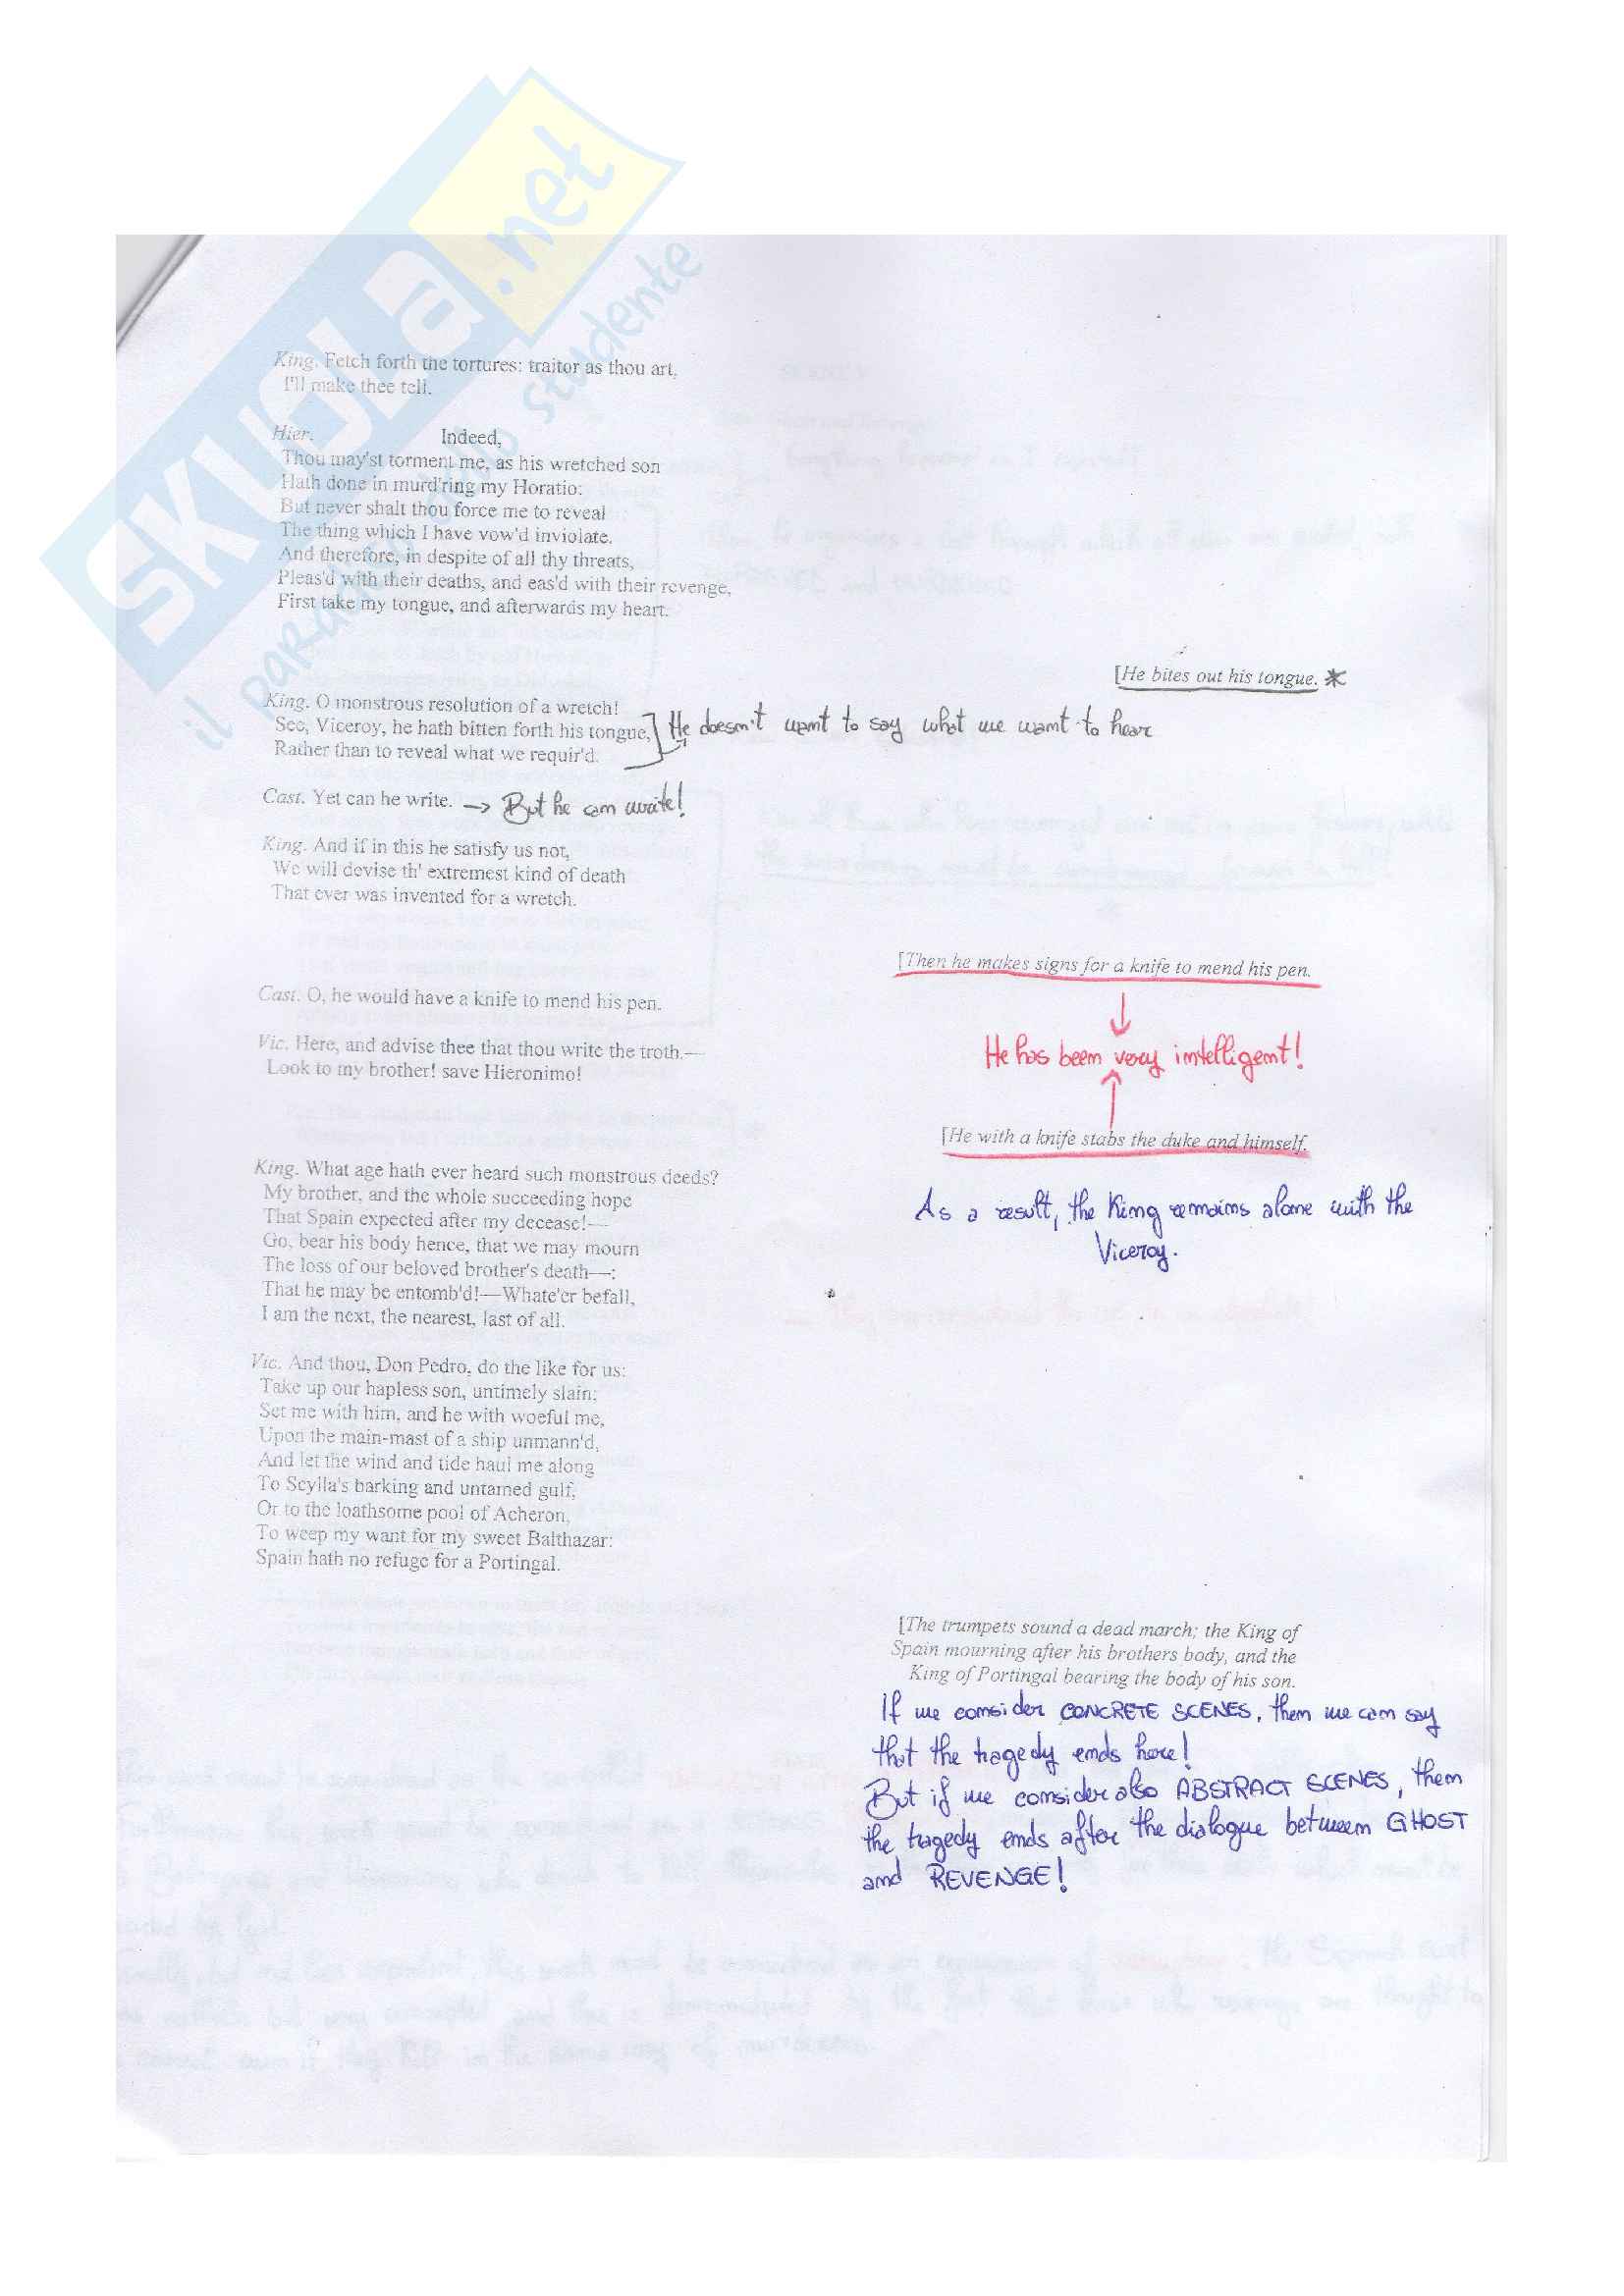 SKUOLA.net
il paradiso dello studente
King. Fetch forth the tortures: traitor as thou art,
I'll make thee tell.
Hier. Indeed,
Thou may'st torment me, as his wretched son
Hath done in murd'ring my Horatio:
But never shalt thou force me to reveal
The thing which I have vow'd inviolate.
And therefore, in despite of all thy threats,
Pleas'd with their deaths, and eas'd with their revenge,
First take my tongue, and afterwards my heart.
[He bites out his tongue. *
King. O monstrous resolution of a wretch!
See, Viceroy, he hath bitten forth his tongue,
Rather than to reveal what we requir'd.
He doesn't want to say what we want to hear
Cast. Yet can he write. → But he can write!
King. And if in this he satisfy us not,
We will devise th' extremest kind of death
That ever was invented for a wretch.
[Then he makes signs for a knife to mend his pen.
Cast. O, he would have a knife to mend his pen.
He has been very intelligent!
Vic. Here, and advise thee that thou write the troth.—
Look to my brother! save Hieronimo!
[He with a knife stabs the duke and himself.
King. What age hath ever heard such monstrous deeds?
My brother, and the whole succeeding hope
That Spain expected after my decease!—
Go, bear his body hence, that we may mourn
The loss of our beloved brother's death—;
That he may be entomb'd!—Whate'er befall,
I am the next, the nearest, last of all.
As a result, the King remains alone with the
Viceroy.
Vic. And thou, Don Pedro, do the like for us:
Take up our hapless son, untimely slain;
Set me with him, and he with woeful me,
Upon the main-mast of a ship unmann'd,
And let the wind and tide haul me along
To Scylla's barking and untamed gulf,
Or to the loathsome pool of Acheron,
To weep my want for my sweet Balthazar:
Spain hath no refuge for a Portingal.
[The trumpets sound a dead march; the King of
Spain mourning after his brothers body, and the
King of Portingal bearing the body of his son.
If we consider CONCRETE SCENES, then we can say
that the tragedy ends here!
But if we consider also ABSTRACT SCENES, then
the tragedy ends after the dialogue between GHOST
and REVENGE!